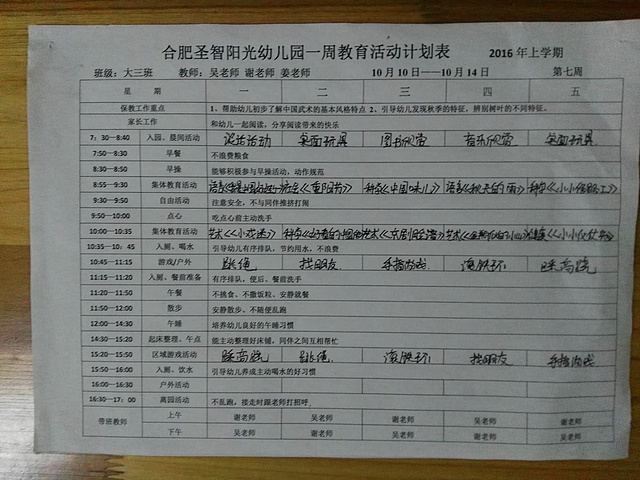 合肥圣智阳光幼儿园一周教育活动计划表 2016年上学期
班级：大三班 教师：吴老师 谢老师 姜老师 10月10日——10月14日 第七周
星 期 一 二 三 四 五
保教工作重点 1、帮助幼儿初步了解中国武术的基本风格特点 2、引导幼儿发现秋季的特征，辨别树叶的不同特征。
家长工作 和幼儿一起阅读，分享阅读带来的快乐
7：30—8:40 入园、晨间活动 混龄活动 桌面玩具 图书欣赏 音乐欣赏 桌面玩具
7:50—8:30 早餐 不浪费粮食
8:30—8:50 早操 能够积极参与早操活动，动作规范
8:55—9:30 集体教育活动 社会《重阳节》 科学《中国味儿》 语言《秋天的雨》 科学
9:30—9:50 自由活动 注意安全，不与同伴推挤打闹
9:50—10:00 点心 吃点心前主动洗手
10:00—10:35 集体教育活动 艺术《小戏迷》 科学 艺术《京剧脸谱》 艺术 健康
10:35—10：45 入厕、喝水 引导幼儿有序排队，节约用水，不浪费
10:45—11:15 游戏/户外 跳绳 找朋友 手指游戏 滚铁环 踩高跷
11:15—11:20 入厕、餐前准备 有序排队，便后、餐前洗手
11:20—11:50 午餐 不挑食、不撒饭粒、安静就餐
11:50—12:00 散步 安静散步、不随便乱跑
12:00—14:30 午睡 培养幼儿良好的午睡习惯
14:30—15:20 起床整理、午点 能主动整理好床铺，同伴之间互相帮忙
15:20—15:50 区域游戏活动 踩高跷 跳绳 滚铁环 找朋友 手指游戏
15:50—16:00 入厕、饮水 引导幼儿养成主动喝水的好习惯
16:00—16:30 户外活动
16:30—17：00 离园活动 不乱跑，接走时跟老师打招呼
带班教师 上午 谢老师 吴老师 谢老师 吴老师 谢老师
下午 吴老师 谢老师 吴老师 谢老师 吴老师